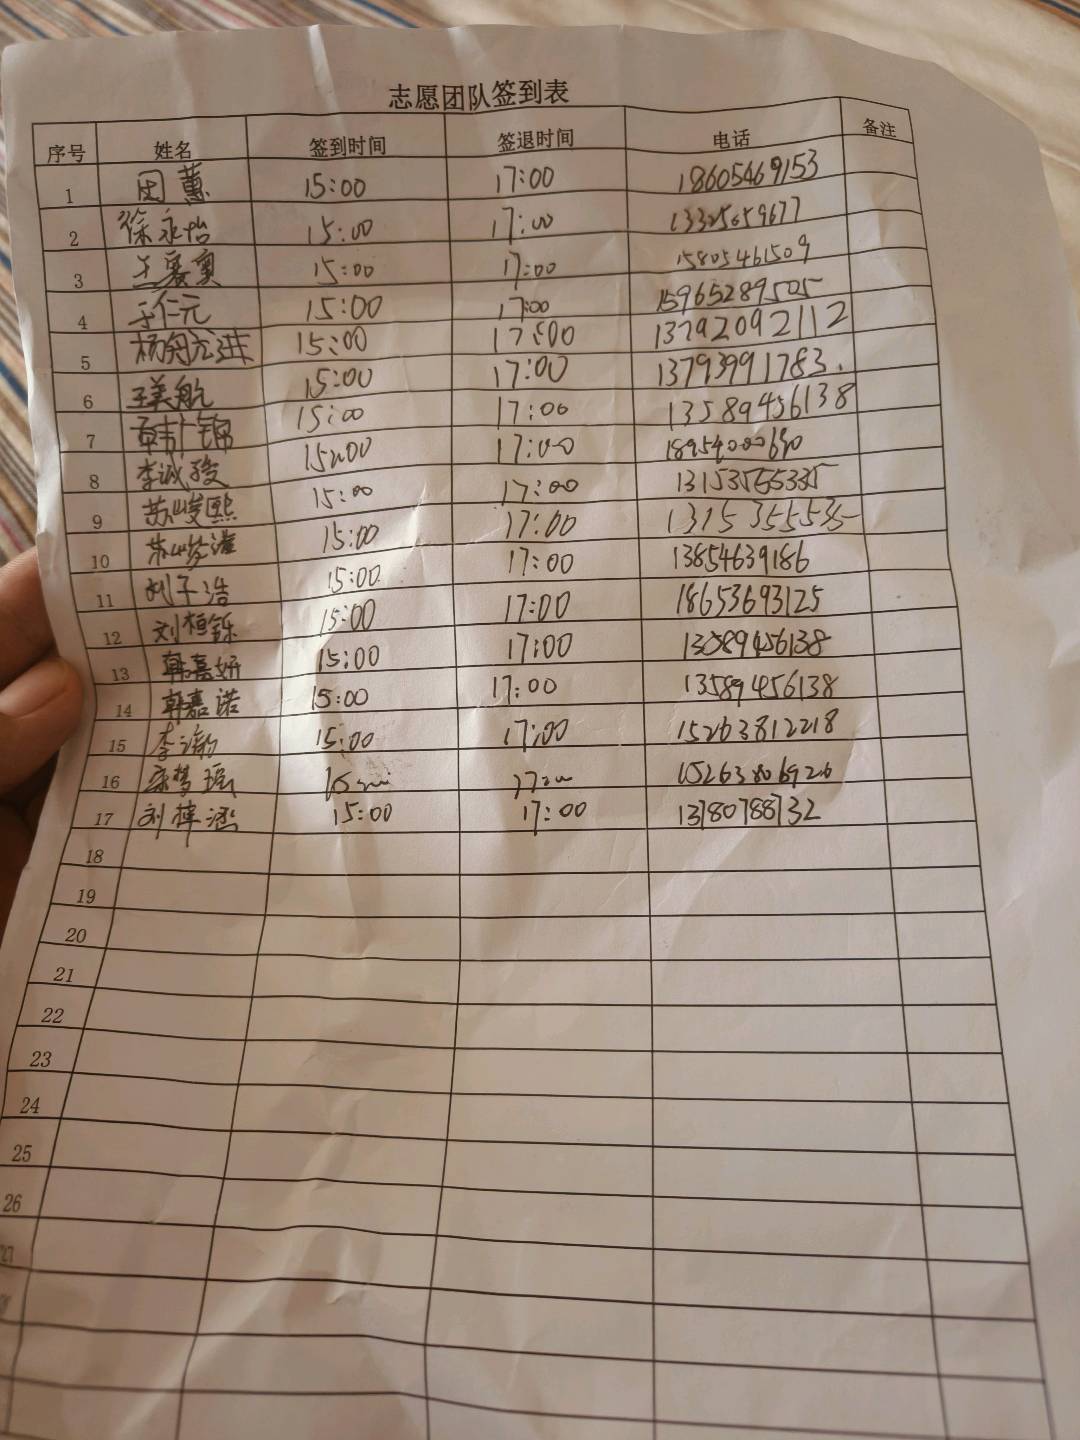 志愿团队签到表
序号 姓名 签到时间 签退时间 电话 备注
1 田蕙 15:00 17:00 18605469153
2 徐永怡 15:00 17:00 13325659677
3 15:00 17:00 15805461509
4 于仁元 15:00 17:00 15965289505
5 15:00 17:00 13792092112
6 王美航 15:00 17:00 13793991783.
7 15:00 17:00 13589456138
8 李诚骏 15:00 17:00
9 苏峻熙 15:00 17:00 13153555335
10 15:00 17:00
11 刘子浩 15:00 17:00 13854639186
12 刘桓铄 15:00 17:00 18653693125
13 韩嘉妍 15:00 17:00 13589456138
14 韩嘉诺 15:00 17:00 13589456138
15 15:00 17:00 15263812218
16 宋梦瑶
17 刘梓涵 15:00 17:00 13780788732
18
19
20
21
22
23
24
25
26
27